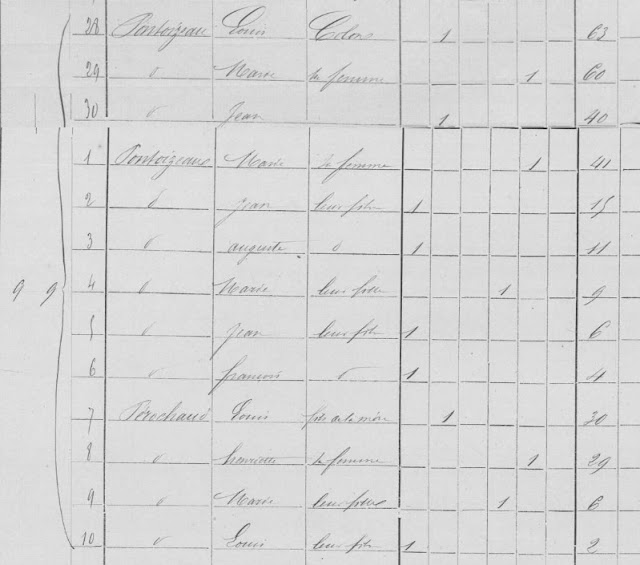 28 Pontoizeau Louis Colon 1 63
29 d Marie sa femme 1 60
30 d Jean 1 40
1 Pontoizeau Marie sa femme 1 41
2 d Jean leur fils 1 15
3 d auguste d 1 11
9 9 4 d Marie leur fille 1 9
5 d Jean leur fils 1 6
6 d françois d 1 4
7 Perochaud Louis 1 30
8 d henriette sa femme 1 29
9 d Marie leur fille 1 6
10 d Louis leur fils 1 2